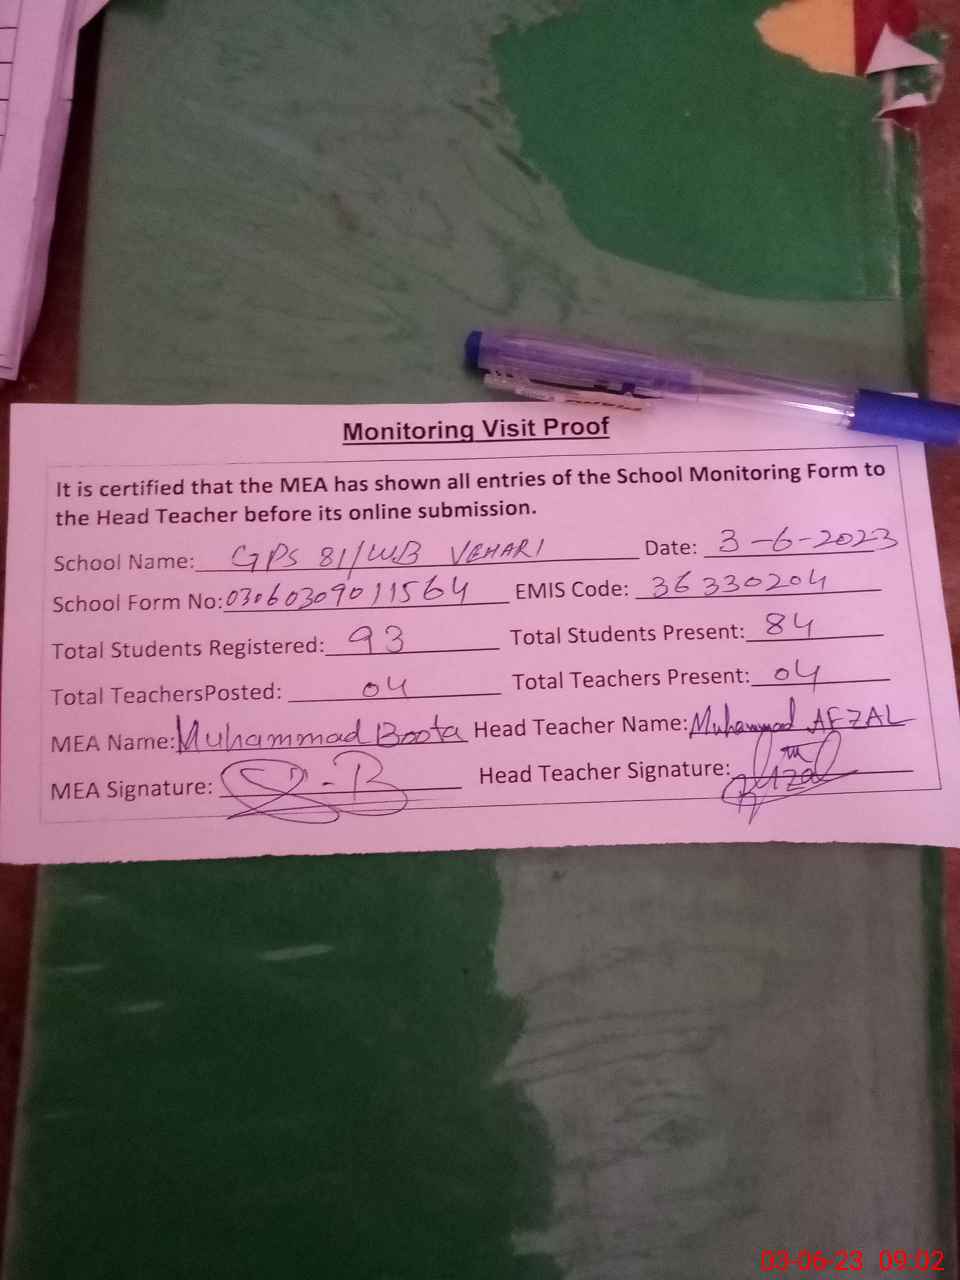 Monitoring Visit Proof
It is certified that the MEA has shown all entries of the School Monitoring Form to
the Head Teacher before its online submission.
School Name: GPS 81/WB VEHARI Date: 3-6-2023
School Form No: 0306030901 1564 EMIS Code: 36330204
Total Students Registered: 93 Total Students Present: 84
Total TeachersPosted: 04 Total Teachers Present: 04
MEA Name: Muhammad Boota Head Teacher Name: Muhammad AFZAL
MEA Signature: Head Teacher Signature: Afzal
03-06-23 09:02